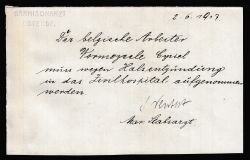 GARNISONARZT
OSTENDE.
2.6.1917.
Der belgische Arbeiter
Vermeysele Cyriel
muss wegen Halsentzündung
in das Zivilhospital aufgenommen
werden
Mar. Stabsarzt